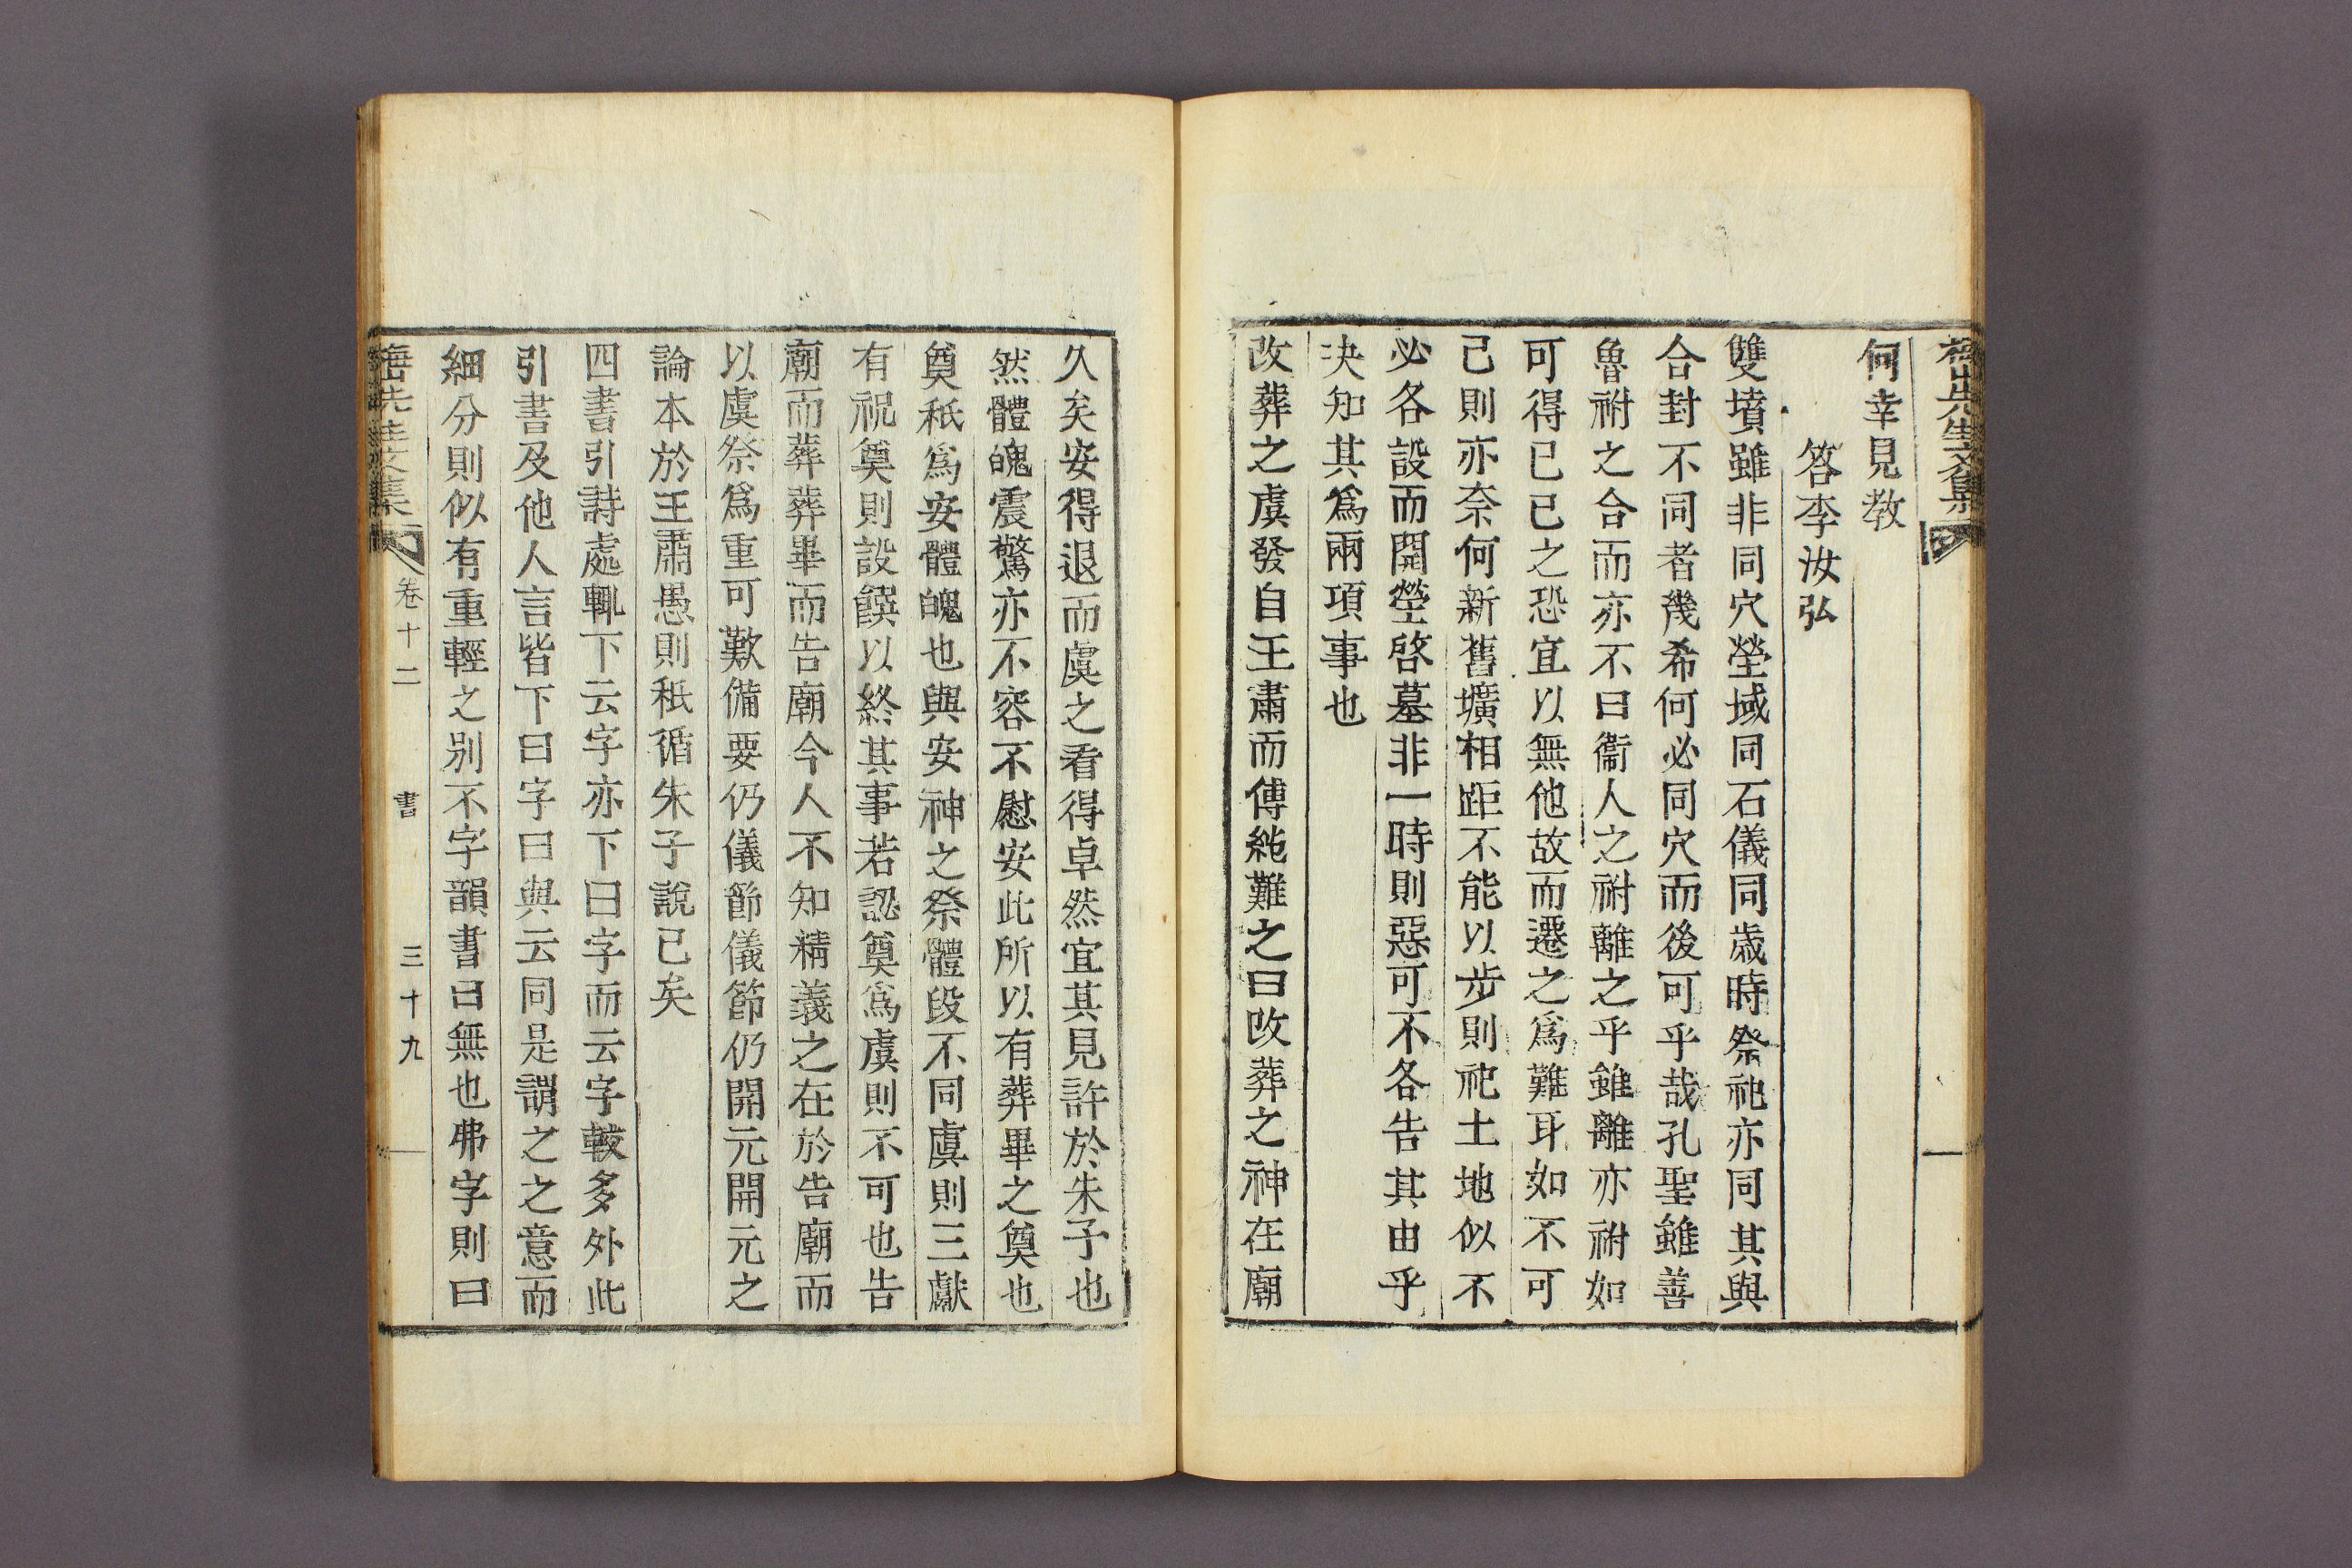 何幸見教
答李汝弘
雙墳雖非同穴塋域同石儀同歲時祭祀亦同其與
合封不同者幾希何必同穴而後可乎哉孔聖雖善
魯祔之合而亦不曰衞人之祔離之乎雖離亦祔如
可得已已之恐宜以無他故而遷之爲難耳如不可
已則亦奈何新舊壙相距不能以步則祀土地似不
必各設而開塋啓墓非一時則惡可不各告其由乎
决知其爲兩項事也
改葬之虞發自王肅而傅純難之曰改葬之神在廟
久矣安得退而虞之看得卓然宜其見許於朱子也
然體魄震驚亦不容不慰安此所以有葬畢之奠也
奠秖爲安體魄也與安神之祭體段不同虞則三獻
有祝奠則設饌以終其事若認奠爲虞則不可也告
廟而葬葬畢而告廟今人不知精義之在於告廟而
以虞祭爲重可歎備要仍儀節儀節仍開元開元之
論本於王肅愚則秖循朱子說已矣
四書引詩處輒下云字亦下曰字而云字較多外此
引書及他人言皆下曰字曰與云同是謂之之意而
細分則似有重輕之別不字韻書曰無也弗字則曰
先生文集 卷十二 書 三十九